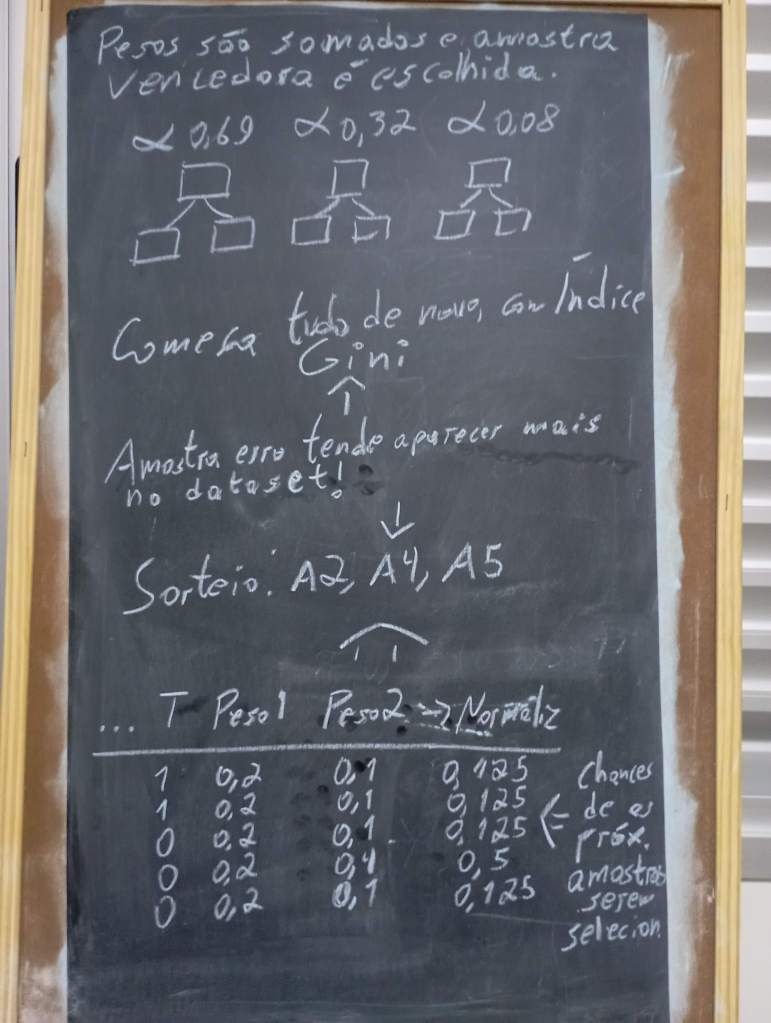 Pesos são somados e amostra
vencedora é escolhida.
α 0,69 α 0,32 α 0,08
Começa tudo de novo, com Índice
Gini
Amostra erro tende aparecer mais
no dataset!
Sorteio: A2, A4, A5
... T Peso1 Peso2 → Normaliz
1 0,2 0,1 0,125
1 0,2 0,1 0,125
0 0,2 0,1 0,125
0 0,2 0,4 0,5
0 0,2 0,1 0,125
Chances
de as
próx.
amostras
serem
selecion.